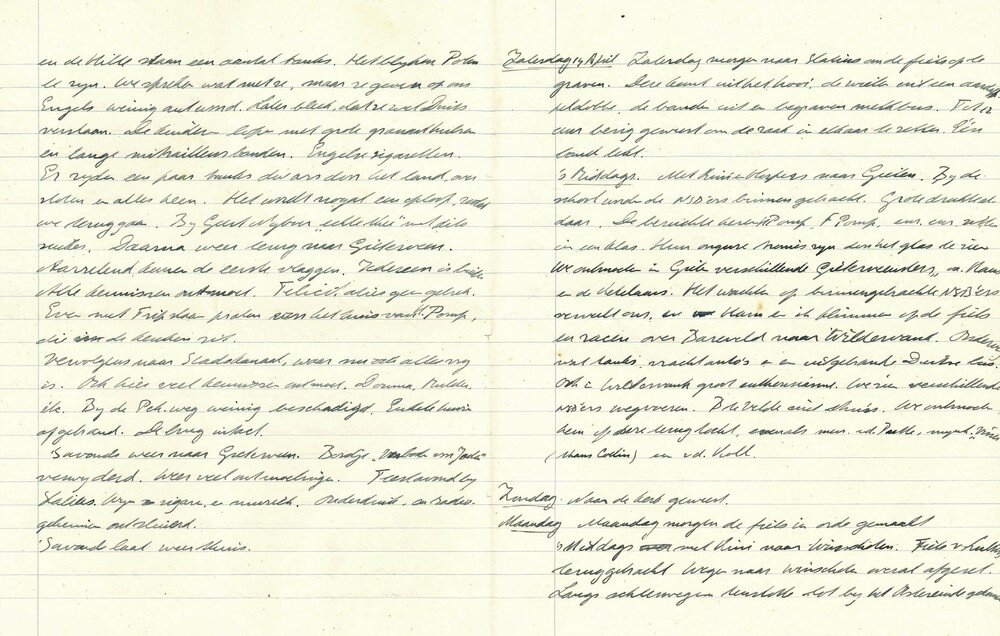 en de Hilte staan een aantal tanks. Het blijken Polen
te zijn. We spreken wat met ze, maar ze geven op ons
Engels weinig antwoord. Later bleek, dat ze wel Duits
verstaan. De kinderen lopen met grote granaathulzen
en lange mitrailleurbanden. Engelse sigaretten.
Er rijden een paar tanks dwars door het land, over
sloten en alles heen. Het wordt nogal een oploop, zodat
we teruggaan. By Geert Nyboer, echte thee met
suiker. Daarna weer terug naar Gieterveen.
de eerste vlaggen. Iedereen is buiten
Alle kennissen ontmoet. Felicitaties geen gebrek.
Even met staan praten het huis van Pomp,
die de keuken zit.
Vervolgens naar Stadskanaal, waar alles vry
is. Ook hier veel kennissen ontmoet, Douma, Mulder
etc. By de Pek. weg weinig beschadigd. Enkele huizen
afgebrand. De brug intact.
's avonds weer naar Gieterveen. Bordje "Verboden voor Joden"
verwyderd. Weer veel ontmoetingen. Feestavond by
Wyn, sigaren, en muziek. Onderduik- en Radio-
geheimen ontsluierd.
's avonds laat weer thuis.
Zaterdag 14 April Zaterdag morgen naar om de fiets op te
graven. Deze komt uit het hooi, de wielen uit een aard-
appeldobbe, de banden uit een begraven melkbus. Tot 12
uur bezig geweest om de zaak in elkaar te zetten. Eén
band lekt.
's Middags. Met naar Gieten. By de
school worden de NSBers binnengebracht. Grote drukte
daar. De beruchte Pomp, F Pomp, enz. enz. zitten
in een klas. Hun ongure tronies zyn door het glas te zien
We ontmoeten in Gieten verschillende Gieterveensters, o.a. Harm
en de Ketelaars. Het wachten op binnengebrachte NSBers
verveelt ons, en Harm en ik klimmen op de fiets
en racen over Bareveld naar Wildervank. Onderweg
wat tanks, vrachtauto's en een uitgebrande Duitse bus.
Ook in Wildervank groot enthousiasme. We zien verschillende
NSBers wegvoeren. B te Velde niet thuis. We ontmoeten
hem op onze terugtocht, evenals mevr. v.d.
(Hans Collin) en v.d. Kolk.
Zondag. Naar de kerk geweest.
Maandag Maandag morgen de fiets in orde gemaakt
's Middags met Rini naar Winschoten. Fiets v.
teruggebracht Wegen naar Winschoten overal afgezet.
Langs achterwegen tot by het